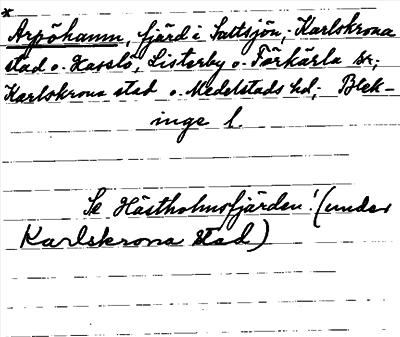 *
Arpöhamn, fjärd i Saltsjön, Karlskrona
stad o. Hasslö, Listerby o. Förkärla sr;
Karlskrona stad o. Medelstads hd; Blek-
inge l.
Se Hästholmsfjärden! (under
Karlskrona stad)